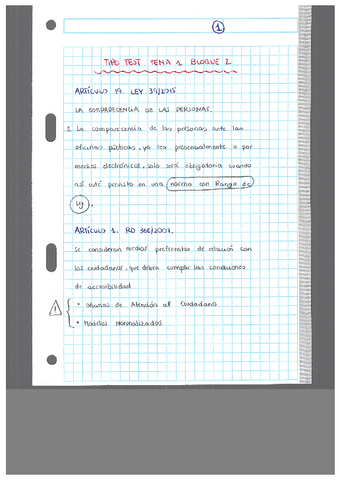 1
TIPO TEST TEMA 1 BLOQUE 2
ARTÍCULO 19. LEY 39/2015
LA COMPARECENCIA DE LAS PERSONAS.
1. La comparecencia de las personas ante las
oficinas públicas, ya sea presencialmente o por
medios electrónicos, solo será obligatoria cuando
así esté previsto en una norma con Rango de
Ley.
ARTÍCULO 1. RD 366/2007.
Se consideran medios preferentes de relación con
los ciudadanos, que deben cumplir las condiciones
de accesibilidad
! • Oficinas de Atención al Ciudadano
• Modelos Normalizados